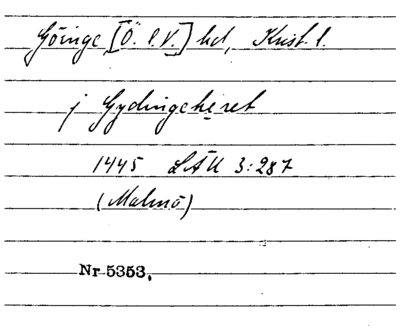 Göinge [Ö. l. V.] hd, Krist. l.
j Gydingeheret
1445 LÄU 3:287
(Malmö)
Nr 5353.